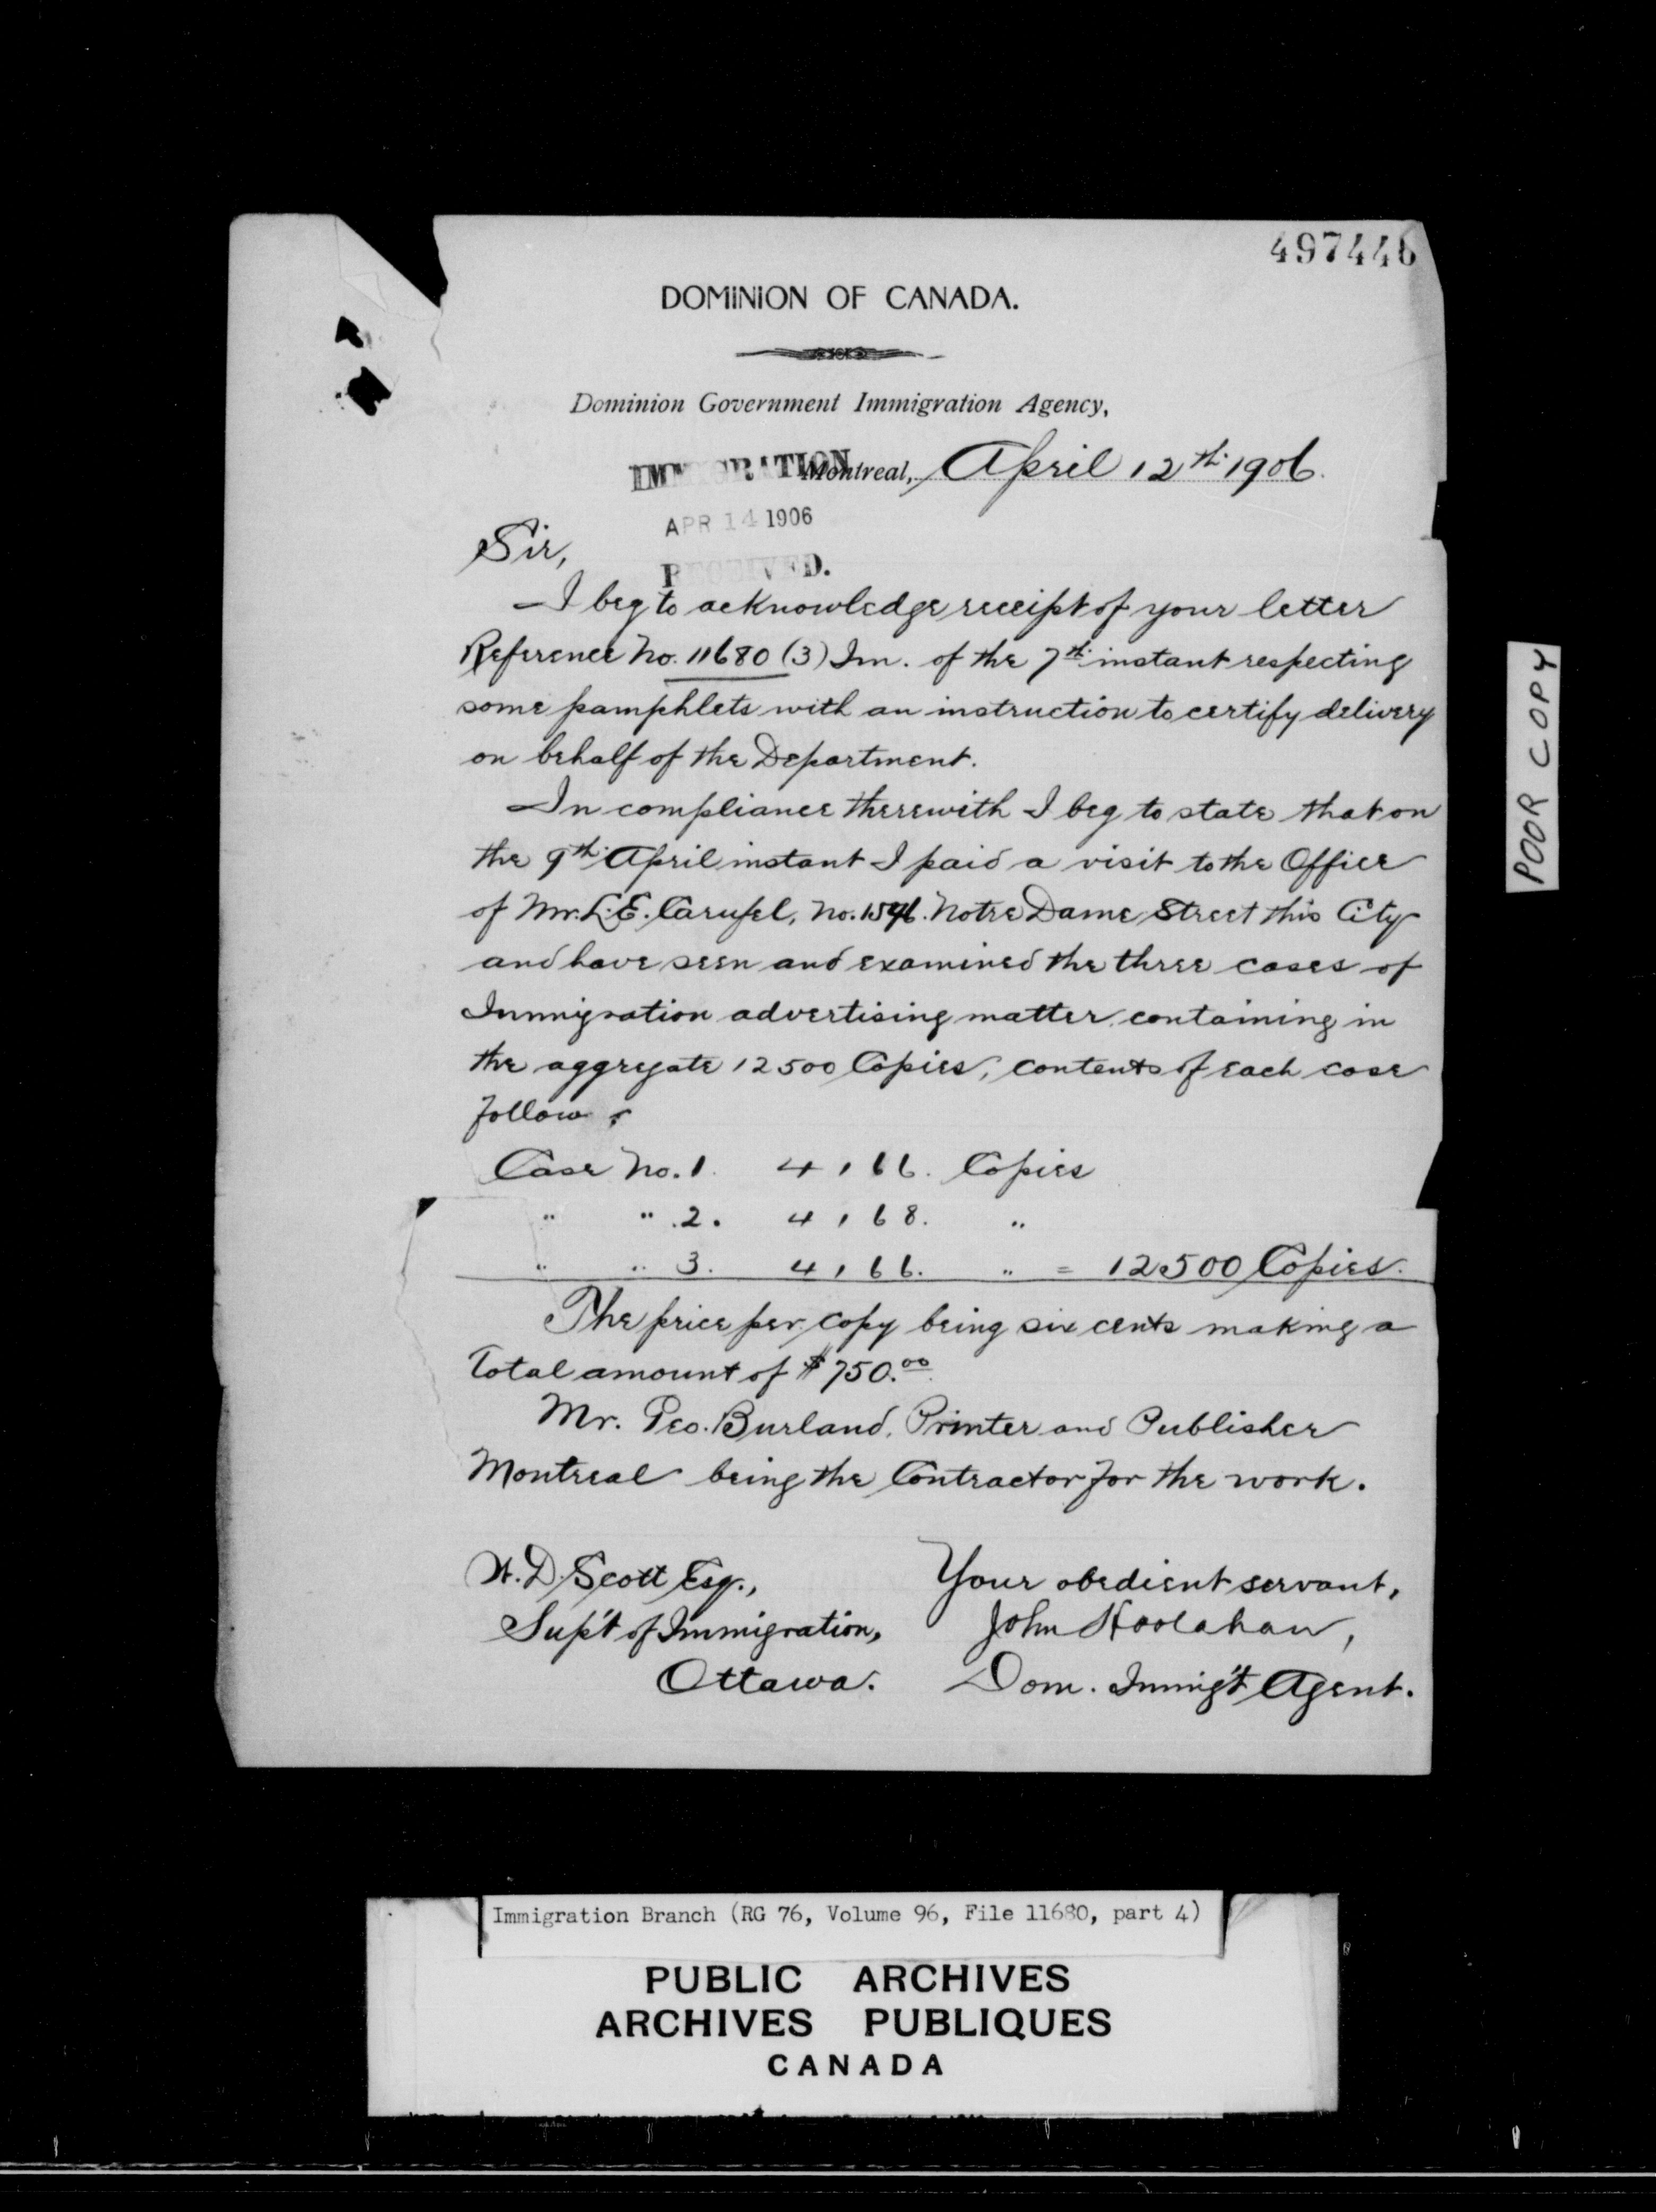 497446
DOMINION OF CANADA.
Dominion Government Immigration Agency,
IMMIGRATION
Montreal, April 12th. 1906.
APR 14 1906
RECEIVED.
Sir,
I beg to acknowledge receipt of your letter
Reference No. 11680 (3) Im. of the 7th. instant respecting
some pamphlets with an instruction to certify delivery
on behalf of the Department.
In compliance therewith I beg to state that on
the 9th. April instant I paid a visit to the Office
of Mr. L.E. Carufel, No. Notre Dame Street this City
and have seen and examined the three cases of
Immigration advertising matter containing in
the aggregate 12500 Copies, contents of each case
follow
Case No. 1. 4,166. Copies
" " 2. 4,168. "
" " 3. 4,166. " = 12500 Copies.
The price per copy being six cents making a
Total amount of $750.00
Mr. Geo. Burland, Printer and Publisher
Montreal being the Contractor for the work.
W.D. Scott Esq.,
Sup't of Immigration,
Ottawa.
Your obedient servant,
John Hoolahan,
Dom. Immig't Agent.
POOR COPY
Immigration Branch (RG 76, Volume 96, File 11680, part 4)
PUBLIC ARCHIVES
ARCHIVES PUBLIQUES
CANADA